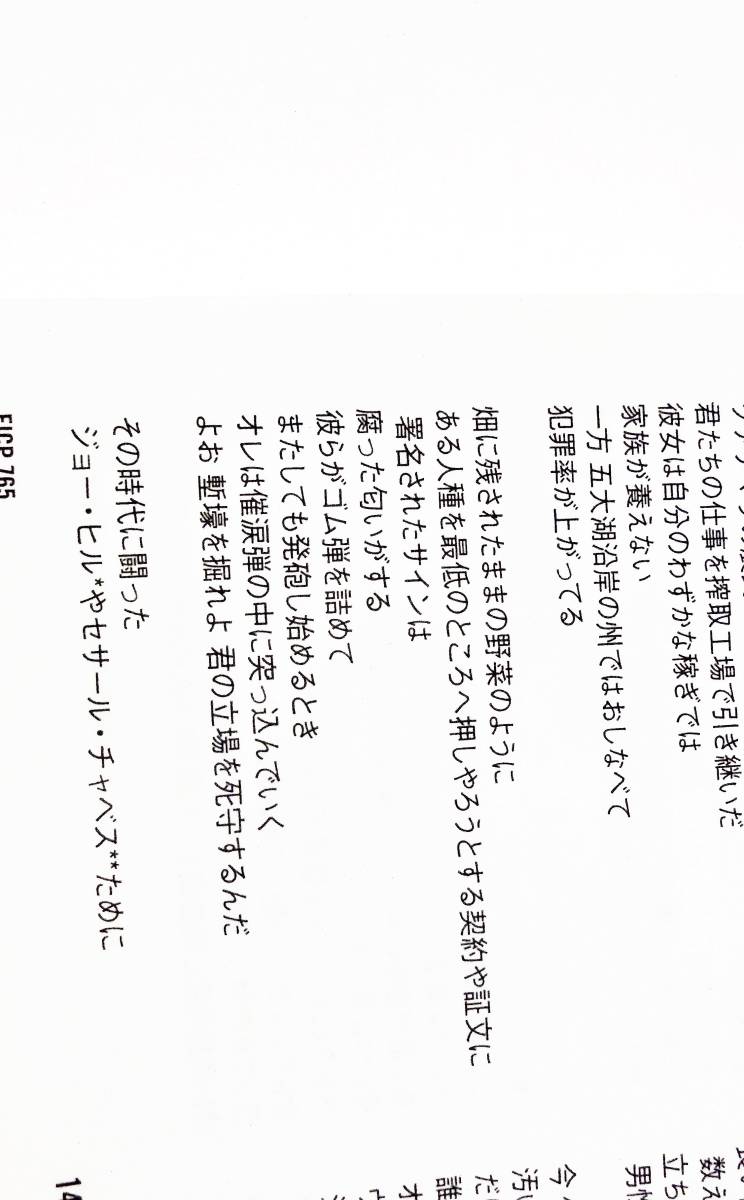 君たちの仕事を搾取工場で引き継いだ
彼女は自分のわずかな稼ぎでは
家族が養えない
一方 五大湖沿岸の州ではおしなべて
犯罪率が上がってる
畑に残されたままの野菜のように
ある人種を最低のところへ押しやろうとする契約や証文に
署名されたサインは
腐った匂いがする
彼らがゴム弾を詰めて
またしても発砲し始めるとき
オレは催涙弾の中に突っ込んでいく
よお 塹壕を掘れよ 君の立場を死守するんだ
その時代に闘った
ジョー・ヒル*やセサール・チャベス**ために
EICP 765
数え
立ち
今
汚
だ
誰
オ
14